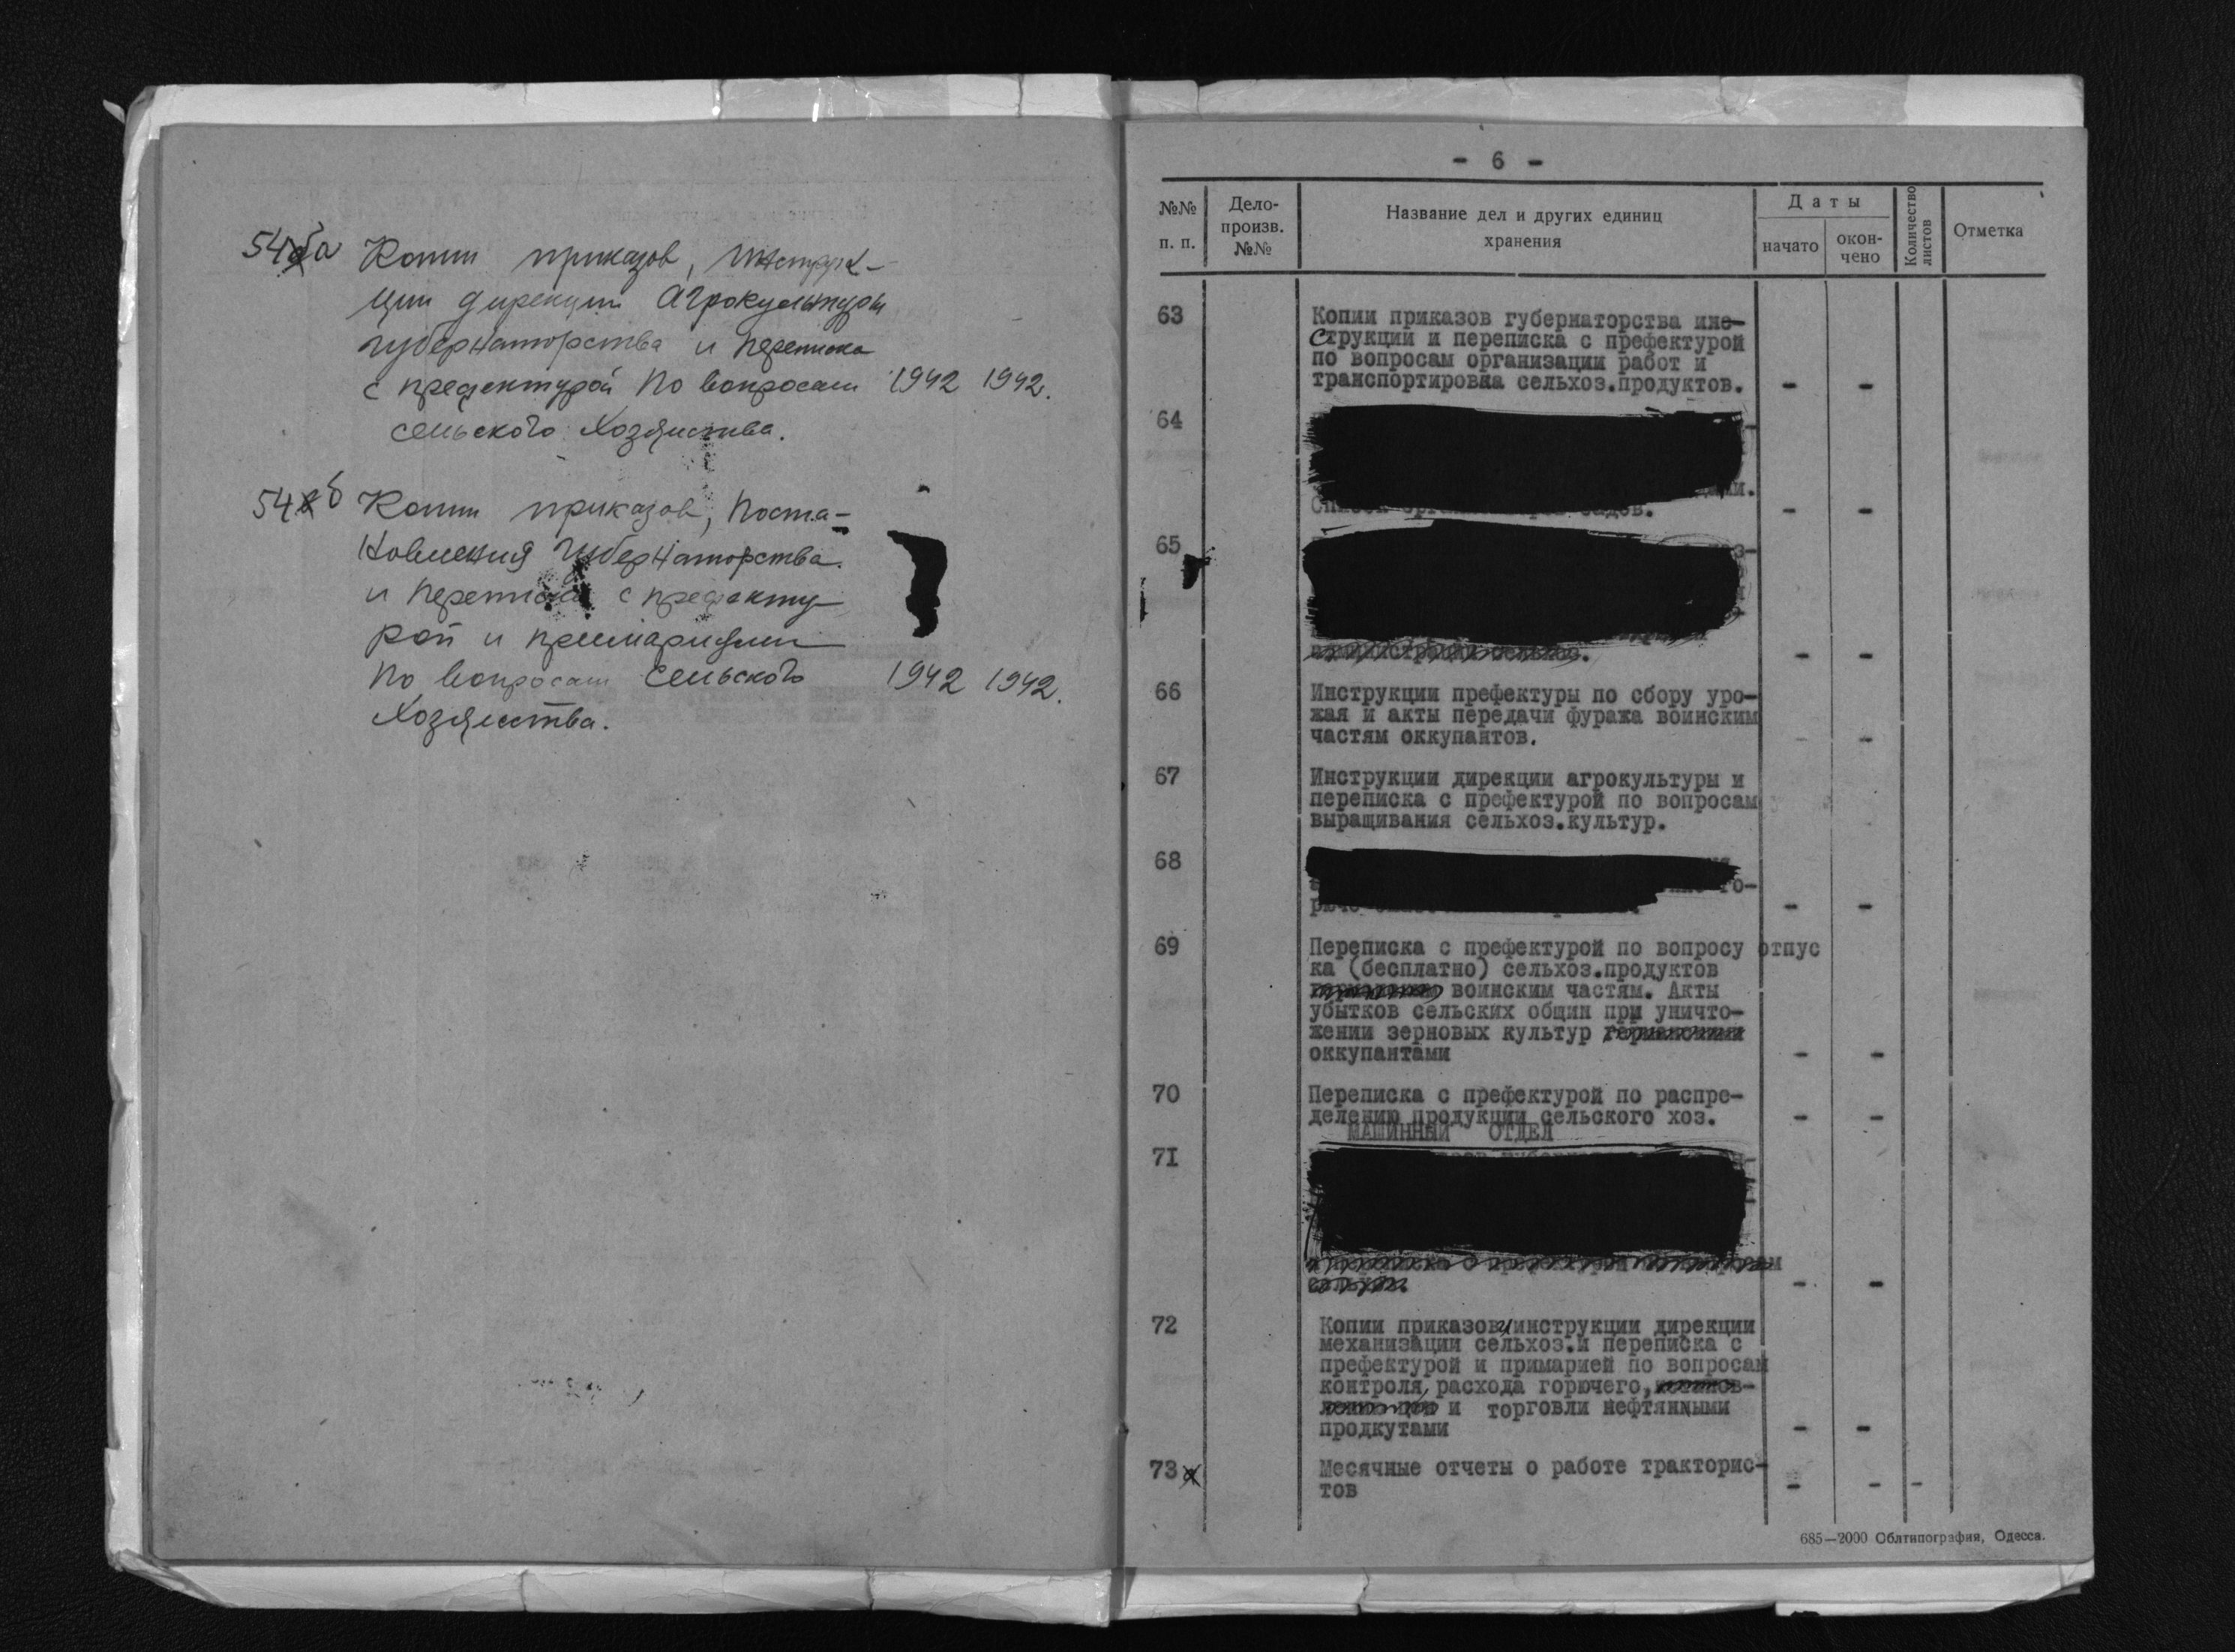 54а Копии приказов, инструк-
ции дирекции агрокультуры
губернаторства и переписка
с префектурой по вопросам 1942 1942.
сельского хозяйства.
54б Копии приказов, поста-
новления губернаторства
и переписка с префекту-
рой и примариями
по вопросам сельского 1942 1942.
хозяйства.
- 6 -
№№ п. п.
Дело-
произв.
№№
Название дел и других единиц
хранения
Даты
начато
окон-
чено
Количество
листов
Отметка
63 Копии приказов губернаторства ин-
струкции и переписка с префектурой
по вопросам организации работ и
транспортировка сельхоз.продуктов. - -
64
садов. - -
65
- -
66 Инструкции префектуры по сбору уро-
жая и акты передачи фуража воинским
частям оккупантов. - -
67 Инструкции дирекции агрокультуры и
переписка с префектурой по вопросам
выращивания сельхоз.культур.
68
- -
69 Переписка с префектурой по вопросу отпус
ка (бесплатно) сельхоз.продуктов
воинским частям. Акты
убытков сельских общин при уничто-
жении зерновых культур
оккупантами - -
70 Переписка с префектурой по распре-
делению продукции сельского хоз. - -
МАШИННЫЙ ОТДЕЛ
71
- -
72 Копии приказов и инструкции дирекции
механизации сельхоз.и переписка с
префектурой и примарией по вопросам
контроля, расхода горючего,
и торговли нефтянными
продкутами - -
73 Месячные отчеты о работе тракторис-
тов - - -
685—2000 Облтипография, Одесса.